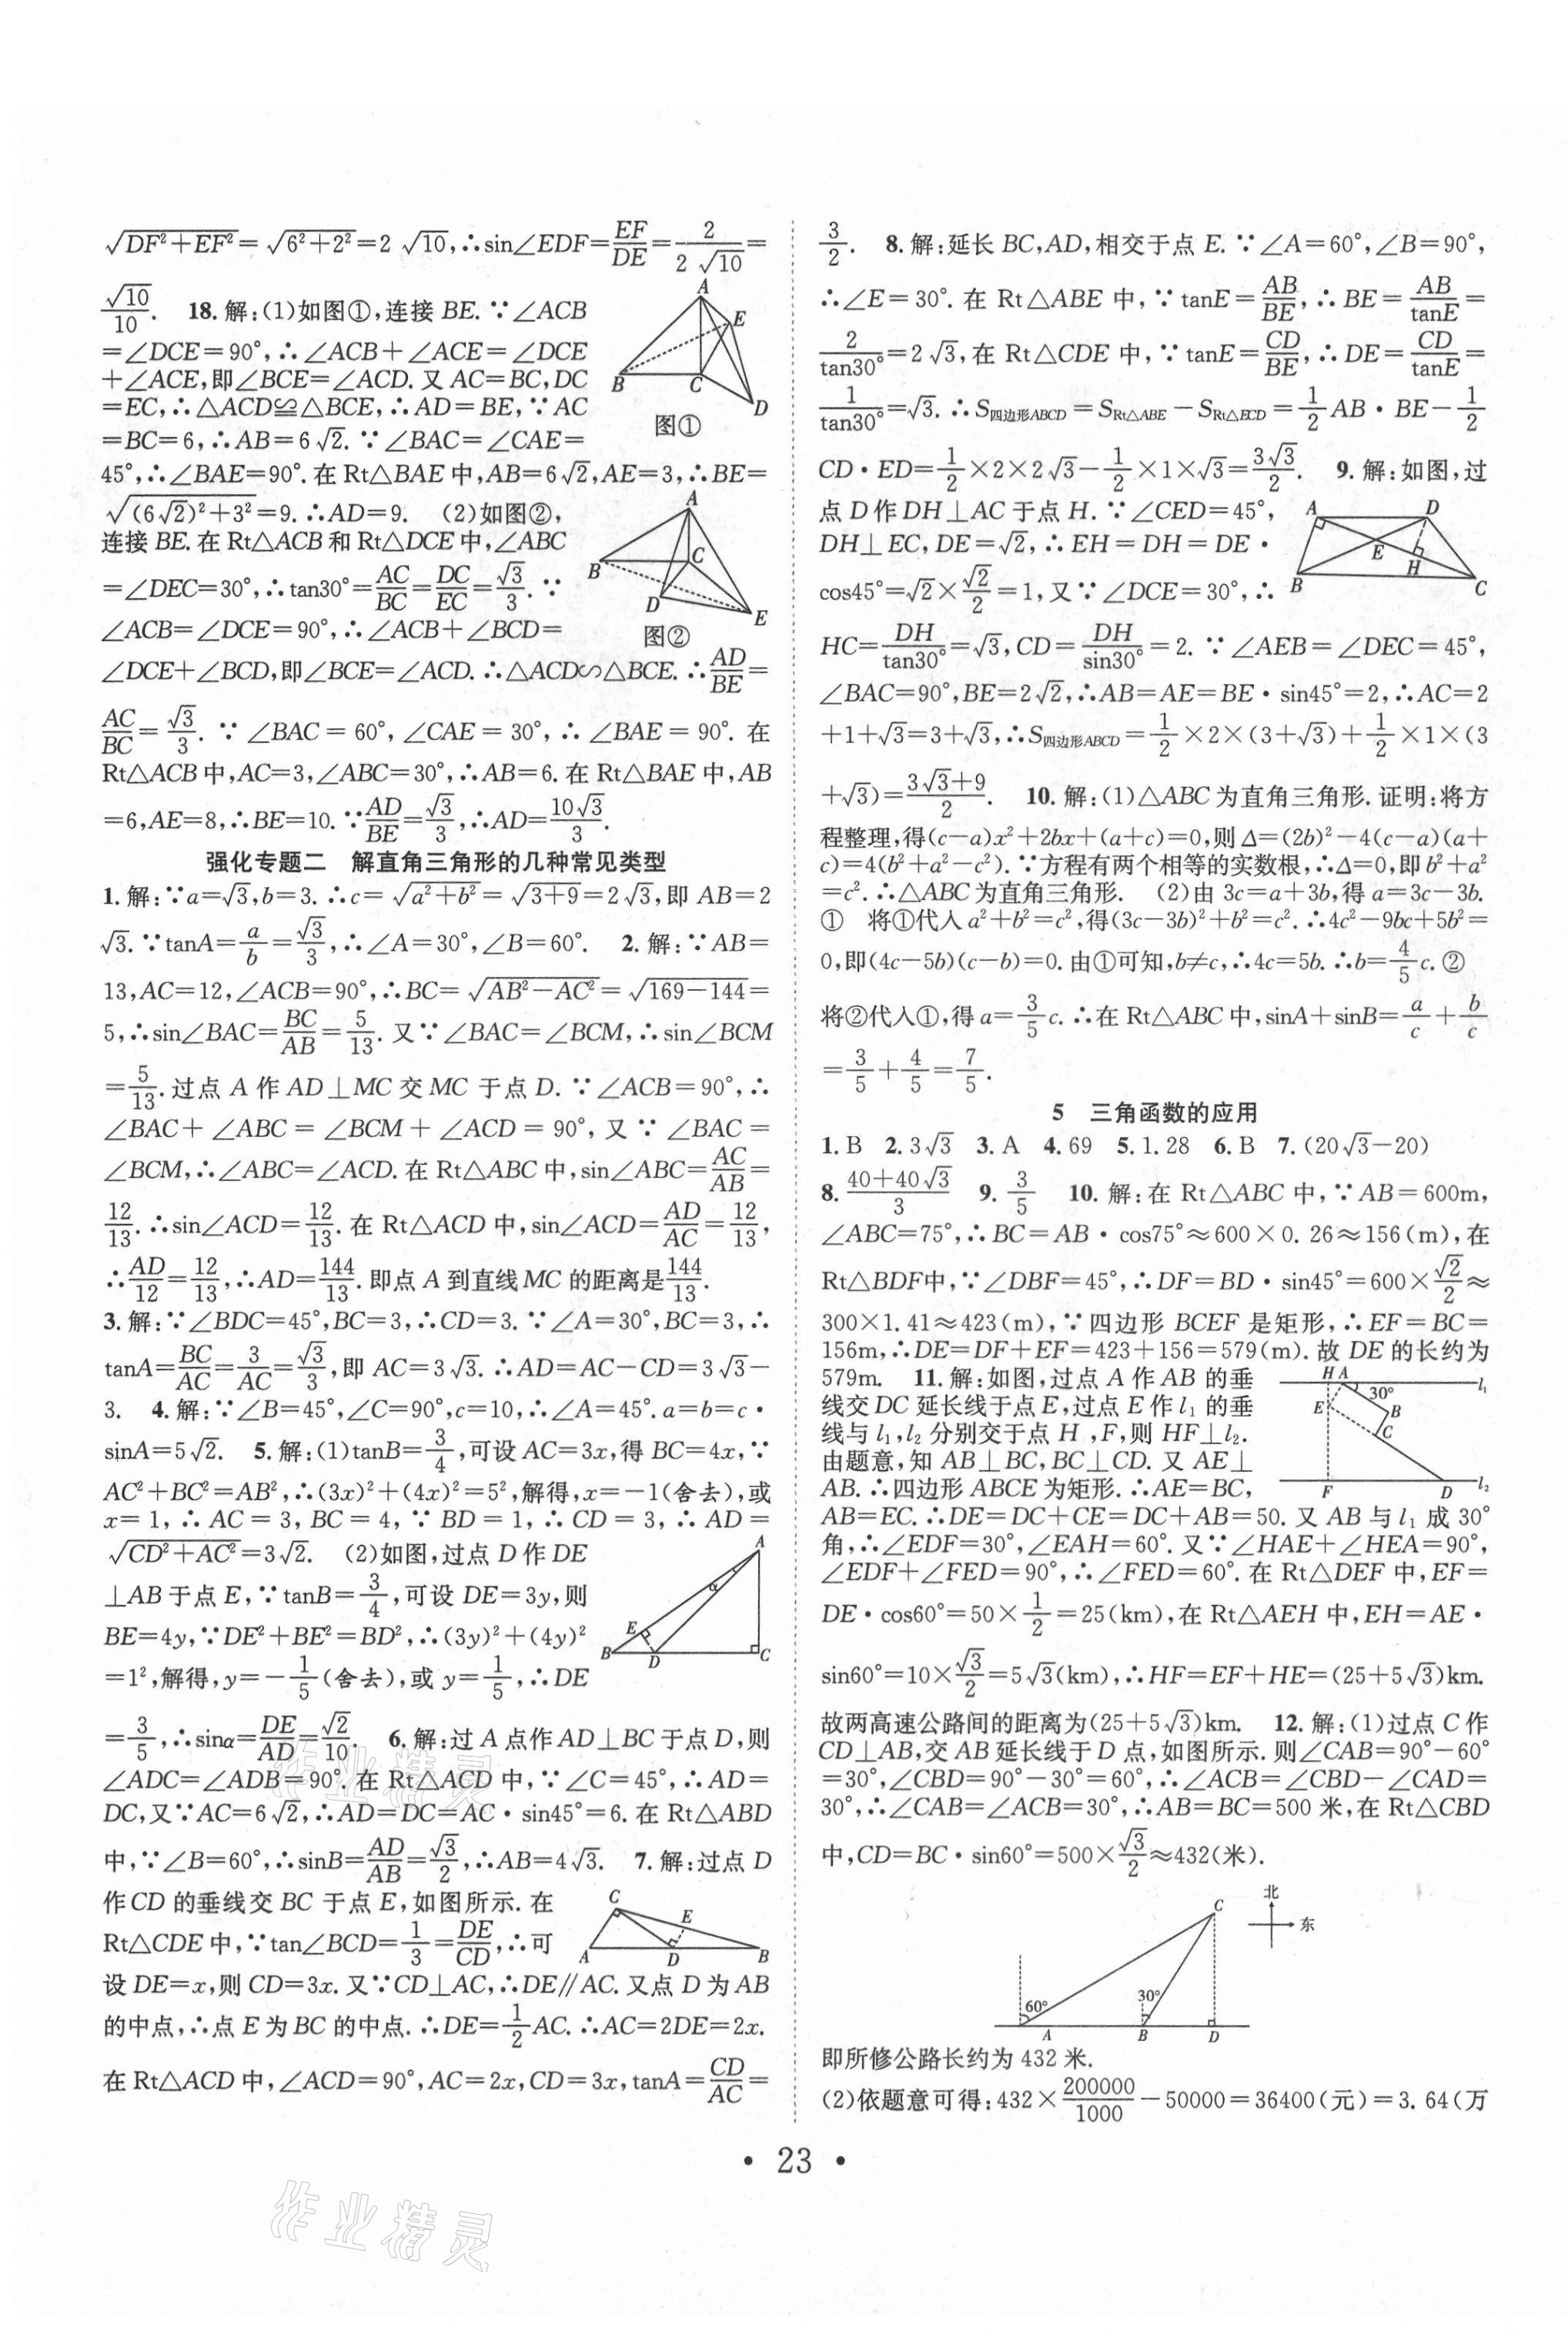 √(DF²+EF²)=√(6²+2²)=2√10,∴sin∠EDF=EF/DE=2/(2√10)=
√10/10. 18.解:(1)如图①,连接BE.∵∠ACB
=∠DCE=90°,∴∠ACB+∠ACE=∠DCE
+∠ACE,即∠BCE=∠ACD.又AC=BC,DC
=EC,∴△ACD≌△BCE,∴AD=BE,∵AC
=BC=6,∴AB=6√2.∵∠BAC=∠CAE=
45°,∴∠BAE=90°.在Rt△BAE中,AB=6√2,AE=3,∴BE=
√((6√2)²+3²)=9.∴AD=9. (2)如图②,
连接BE.在Rt△ACB和Rt△DCE中,∠ABC
=∠DEC=30°,∴tan30°=AC/BC=DC/EC=√3/3.∵
∠ACB=∠DCE=90°,∴∠ACB+∠BCD=
∠DCE+∠BCD,即∠BCE=∠ACD.∴△ACD∽△BCE.∴AD/BE=
AC/BC=√3/3.∵∠BAC=60°,∠CAE=30°,∴∠BAE=90°.在
Rt△ACB中,AC=3,∠ABC=30°,∴AB=6.在Rt△BAE中,AB
=6,AE=8,∴BE=10.∵AD/BE=√3/3,∴AD=10√3/3.
A
E
B
C
D
图①
A
B
C
D
E
图②
强化专题二 解直角三角形的几种常见类型
1.解:∵a=√3,b=3.∴c=√(a²+b²)=√(3+9)=2√3,即AB=2
√3.∵tanA=a/b=√3/3,∴∠A=30°,∠B=60°. 2.解:∵AB=
13,AC=12,∠ACB=90°,∴BC=√(AB²-AC²)=√(169-144)=
5,∴sin∠BAC=BC/AB=5/13.又∵∠BAC=∠BCM,∴sin∠BCM
=5/13.过点A作AD⊥MC交MC于点D.∵∠ACB=90°,∴
∠BAC+∠ABC=∠BCM+∠ACD=90°,又∵∠BAC=
∠BCM,∴∠ABC=∠ACD.在Rt△ABC中,sin∠ABC=AC/AB=
12/13.∴sin∠ACD=12/13.在Rt△ACD中,sin∠ACD=AD/AC=12/13,
∴AD/12=12/13,∴AD=144/13.即点A到直线MC的距离是144/13.
3.解:∵∠BDC=45°,BC=3,∴CD=3.∵∠A=30°,BC=3,∴
tanA=BC/AC=3/AC=√3/3,即AC=3√3.∴AD=AC-CD=3√3-
3. 4.解:∵∠B=45°,∠C=90°,c=10,∴∠A=45°.a=b=c·
sinA=5√2. 5.解:(1)tanB=3/4,可设AC=3x,得BC=4x,∵
AC²+BC²=AB²,∴(3x)²+(4x)²=5²,解得,x=-1(舍去),或
x=1,∴AC=3,BC=4,∵BD=1,∴CD=3,∴AD=
√(CD²+AC²)=3√2. (2)如图,过点D作DE
⊥AB于点E,∵tanB=3/4,可设DE=3y,则
BE=4y,∵DE²+BE²=BD²,∴(3y)²+(4y)²
=1²,解得,y=-1/5(舍去),或y=1/5,∴DE
=3/5,∴sinα=DE/AD=√2/10. 6.解:过A点作AD⊥BC于点D,则
A
α
E
B
D
C
∠ADC=∠ADB=90°.在Rt△ACD中,∵∠C=45°,∴AD=
DC,又∵AC=6√2,∴AD=DC=AC·sin45°=6.在Rt△ABD
中,∵∠B=60°,∴sinB=AD/AB=√3/2,∴AB=4√3. 7.解:过点D
作CD的垂线交BC于点E,如图所示.在
Rt△CDE中,∵tan∠BCD=1/3=DE/CD,∴可
设DE=x,则CD=3x.又∵CD⊥AC,∴DE∥AC.又点D为AB
的中点,∴点E为BC的中点.∴DE=1/2AC.∴AC=2DE=2x.
在Rt△ACD中,∠ACD=90°,AC=2x,CD=3x,tanA=CD/AC=
C
E
A
D
B
3/2. 8.解:延长BC,AD,相交于点E.∵∠A=60°,∠B=90°,
∴∠E=30°.在Rt△ABE中,∵tanE=AB/BE,∴BE=AB/tanE=
2/tan30°=2√3,在Rt△CDE中,∵tanE=CD/BE,∴DE=CD/tanE=
1/tan30°=√3.∴S四边形ABCD=SRt△ABE-SRt△ECD=1/2AB·BE-1/2
CD·ED=1/2×2×2√3-1/2×1×√3=3√3/2. 9.解:如图,过
点D作DH⊥AC于点H.∵∠CED=45°,
DH⊥EC,DE=√2,∴EH=DH=DE·
cos45°=√2×√2/2=1,又∵∠DCE=30°,∴
HC=DH/tan30°=√3,CD=DH/sin30°=2.∵∠AEB=∠DEC=45°,
∠BAC=90°,BE=2√2,∴AB=AE=BE·sin45°=2,∴AC=2
+1+√3=3+√3,∴S四边形ABCD=1/2×2×(3+√3)+1/2×1×(3
+√3)=(3√3+9)/2. 10.解:(1)△ABC为直角三角形.证明:将方
A
D
E
H
B
C
程整理,得(c-a)x²+2bx+(a+c)=0,则Δ=(2b)²-4(c-a)(a+
c)=4(b²+a²-c²).∵方程有两个相等的实数根,∴Δ=0,即b²+a²
=c².∴△ABC为直角三角形. (2)由3c=a+3b,得a=3c-3b.
① 将①代入a²+b²=c²,得(3c-3b)²+b²=c².∴4c²-9bc+5b²=
0,即(4c-5b)(c-b)=0.由①可知,b≠c,∴4c=5b.∴b=4/5c.②
将②代入①,得a=3/5c.∴在Rt△ABC中,sinA+sinB=a/c+b/c
=3/5+4/5=7/5.
5 三角函数的应用
1.B 2.3√3 3.A 4.69 5.1.28 6.B 7.(20√3-20)
8.(40+40√3)/3 9.3/5 10.解:在Rt△ABC中,∵AB=600m,
∠ABC=75°,∴BC=AB·cos75°≈600×0.26≈156(m),在
Rt△BDF中,∵∠DBF=45°,∴DF=BD·sin45°=600×√2/2≈
300×1.41≈423(m),∵四边形BCEF是矩形,∴EF=BC=
156m,∴DE=DF+EF=423+156=579(m).故DE的长约为
579m. 11.解:如图,过点A作AB的垂
线交DC延长线于点E,过点E作l₁的垂
线与l₁,l₂分别交于点H,F,则HF⊥l₂.
由题意,知AB⊥BC,BC⊥CD.又AE⊥
AB.∴四边形ABCE为矩形.∴AE=BC,
AB=EC.∴DE=DC+CE=DC+AB=50.又AB与l₁成30°
角,∴∠EDF=30°,∠EAH=60°.又∵∠HAE+∠HEA=90°,
∠EDF+∠FED=90°,∴∠FED=60°.在Rt△DEF中,EF=
DE·cos60°=50×1/2=25(km),在Rt△AEH中,EH=AE·
sin60°=10×√3/2=5√3(km),∴HF=EF+HE=(25+5√3)km.
H A
l₁
30°
E
B
C
F
D
l₂
故两高速公路间的距离为(25+5√3)km. 12.解:(1)过点C作
CD⊥AB,交AB延长线于D点,如图所示.则∠CAB=90°-60°
=30°,∠CBD=90°-30°=60°,∴∠ACB=∠CBD-∠CAD=
30°,∴∠CAB=∠ACB=30°,∴AB=BC=500米,在Rt△CBD
中,CD=BC·sin60°=500×√3/2≈432(米).
北
东
C
60°
30°
A
B
D
即所修公路长约为432米.
(2)依题意可得:432×200000/1000-50000=36400(元)=3.64(万
· 23 ·
作业精灵
作业精灵